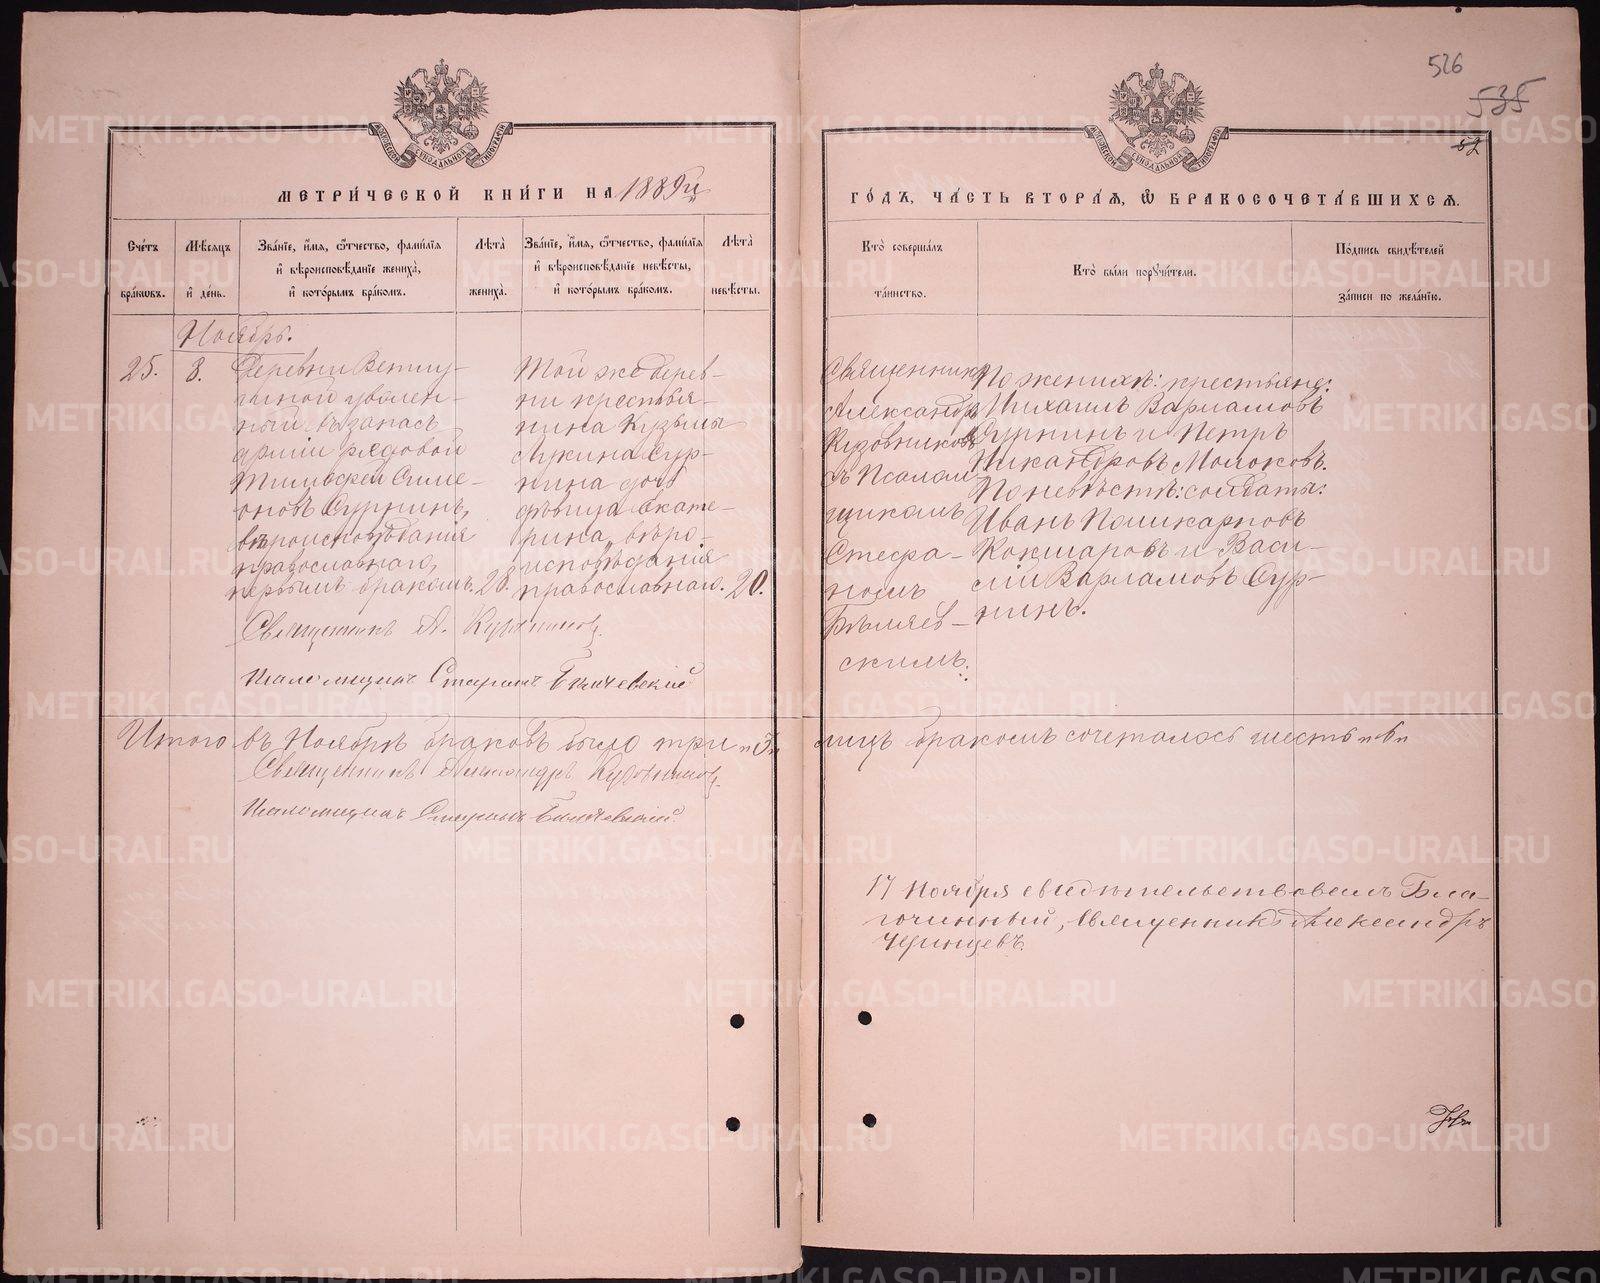 526
535
52
МОСКОВСКОЙ СѴНОДАЛЬНОЙ ТИПОГРАФІИ
МОСКОВСКОЙ СѴНОДАЛЬНОЙ ТИПОГРАФІИ
МЕТРИ́ЧЕСКОЙ КНИ́ГИ НА 1889й
ГО́ДЪ, ЧА́СТЬ ВТОРА́Я, Ѡ҆ БРАКОСОЧЕТА́ВШИХСѦ.
Сче́тъ бра́кѡвъ.
Мѣ́сѧцъ и҆ де́нь.
Зва́нїе, и҆́мѧ, ѻ҆́тчество, фами́лїѧ
и҆ вѣроисповѣ́данїе жениха̀,
и҆ кото́рымъ бра́комъ.
Лѣ́та жениха̀.
Зва́нїе, и҆́мѧ, ѻ҆́тчество, фами́лїѧ
и҆ вѣроисповѣ́данїе невѣ́сты,
и҆ кото́рымъ бра́комъ.
Лѣ́та невѣ́сты.
Кто̀ соверша́лъ та́инство.
Кто̀ бы́ли порꙋчи́тели.
По́дпись свидѣ́телей за́писи по жела́нїю.
Ноябрь.
25.
8.
Деревни Ветлу-
гиной уволен-
ный въ запасъ
арміи рядовой
Тимофей Симе-
оновъ Суркинъ,
вѣроисповѣданія
православнаго,
первымъ бракомъ.
28.
Той же дерев-
ни крестья-
нина Кузьмы
Лукина Сур-
нина дочь
дѣвица Екате-
рина, вѣро-
исповѣданія
православнаго.
20.
Священникъ
Александръ
Кузовниковъ
съ Псалом-
щикомъ
Стефа-
номъ
Бѣляев-
скимъ.
По женихѣ: крестьяне:
Михаилъ Варламовъ
Суркинъ и Петръ
Никандровъ Молоковъ.
По невѣстѣ: солдаты:
Иванъ Поликарповъ
Кокшаровъ и Васи-
лій Варламовъ Сур-
нинъ.
Священникъ А. Кузовниковъ.
Псаломщикъ Стефанъ Бѣляевскій
Итого въ Ноябрѣ браковъ было три „3„ лицъ бракомъ сочеталось шесть „6„
Священникъ Александръ Кузовниковъ
Псаломщикъ Стефанъ Бѣляевскій
17 Ноября свидѣтельствовалъ Бла-
гочинный, Священникъ Александръ